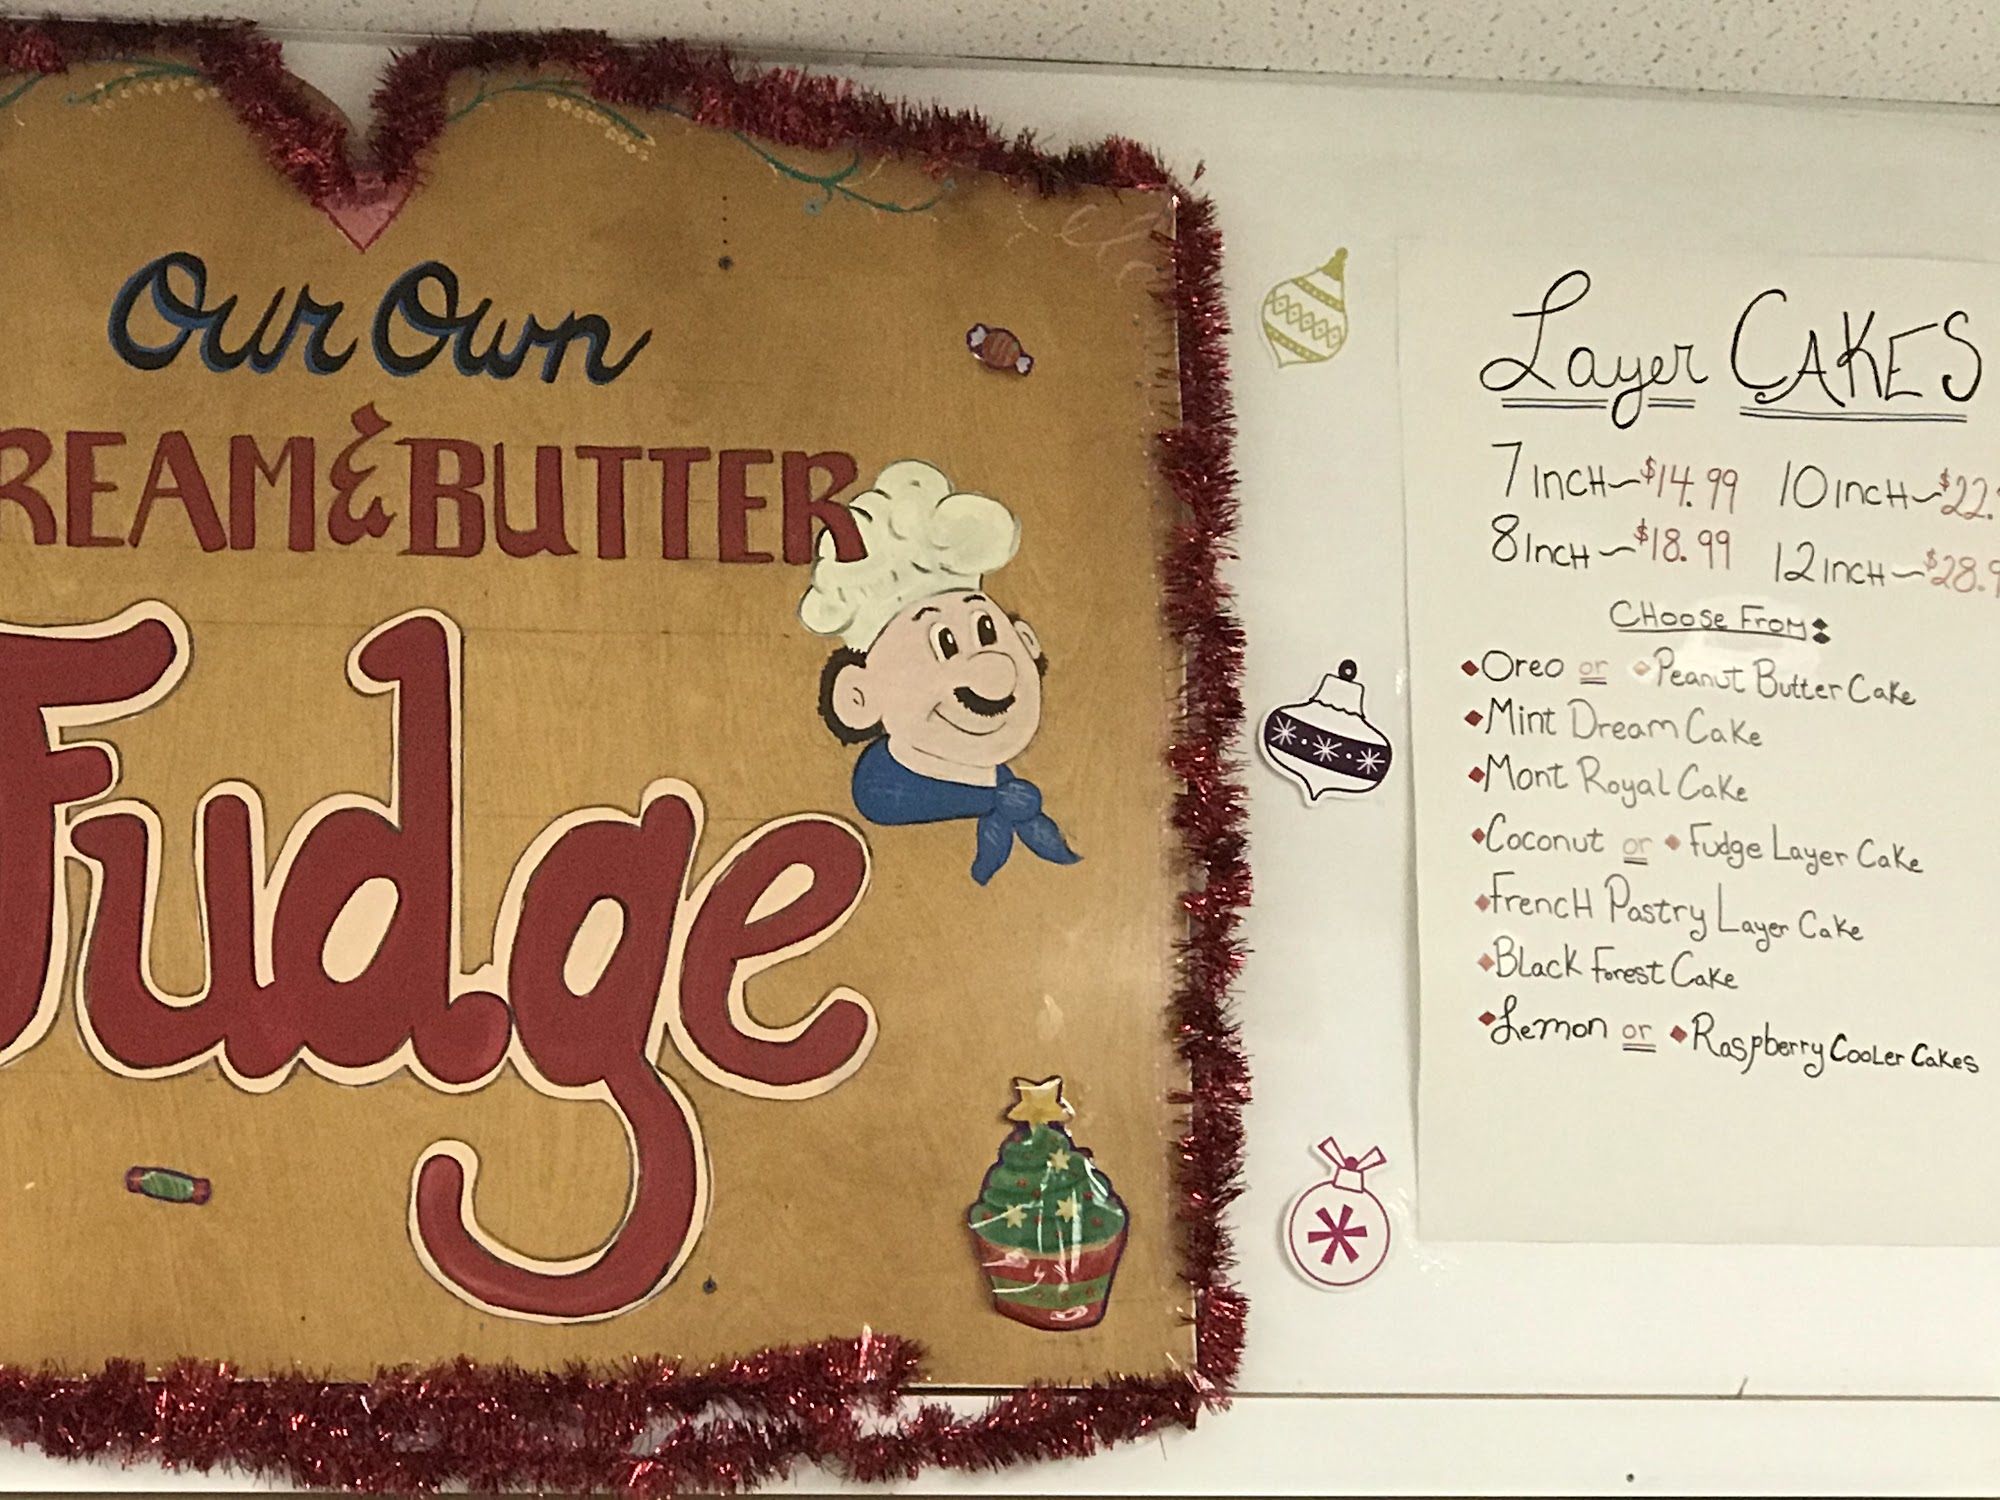 Our Own
REAM & BUTTER
Fudge
Layer CAKES
7 INCH ~ $14.99 10 INCH ~ $22.
8 INCH ~ $18.99 12 INCH ~ $28.9
CHOOSE FROM:
Oreo or Peanut Butter Cake
Mint Dream Cake
Mont Royal Cake
Coconut or Fudge Layer Cake
French Pastry Layer Cake
Black Forest Cake
Lemon or Raspberry Cooler Cakes